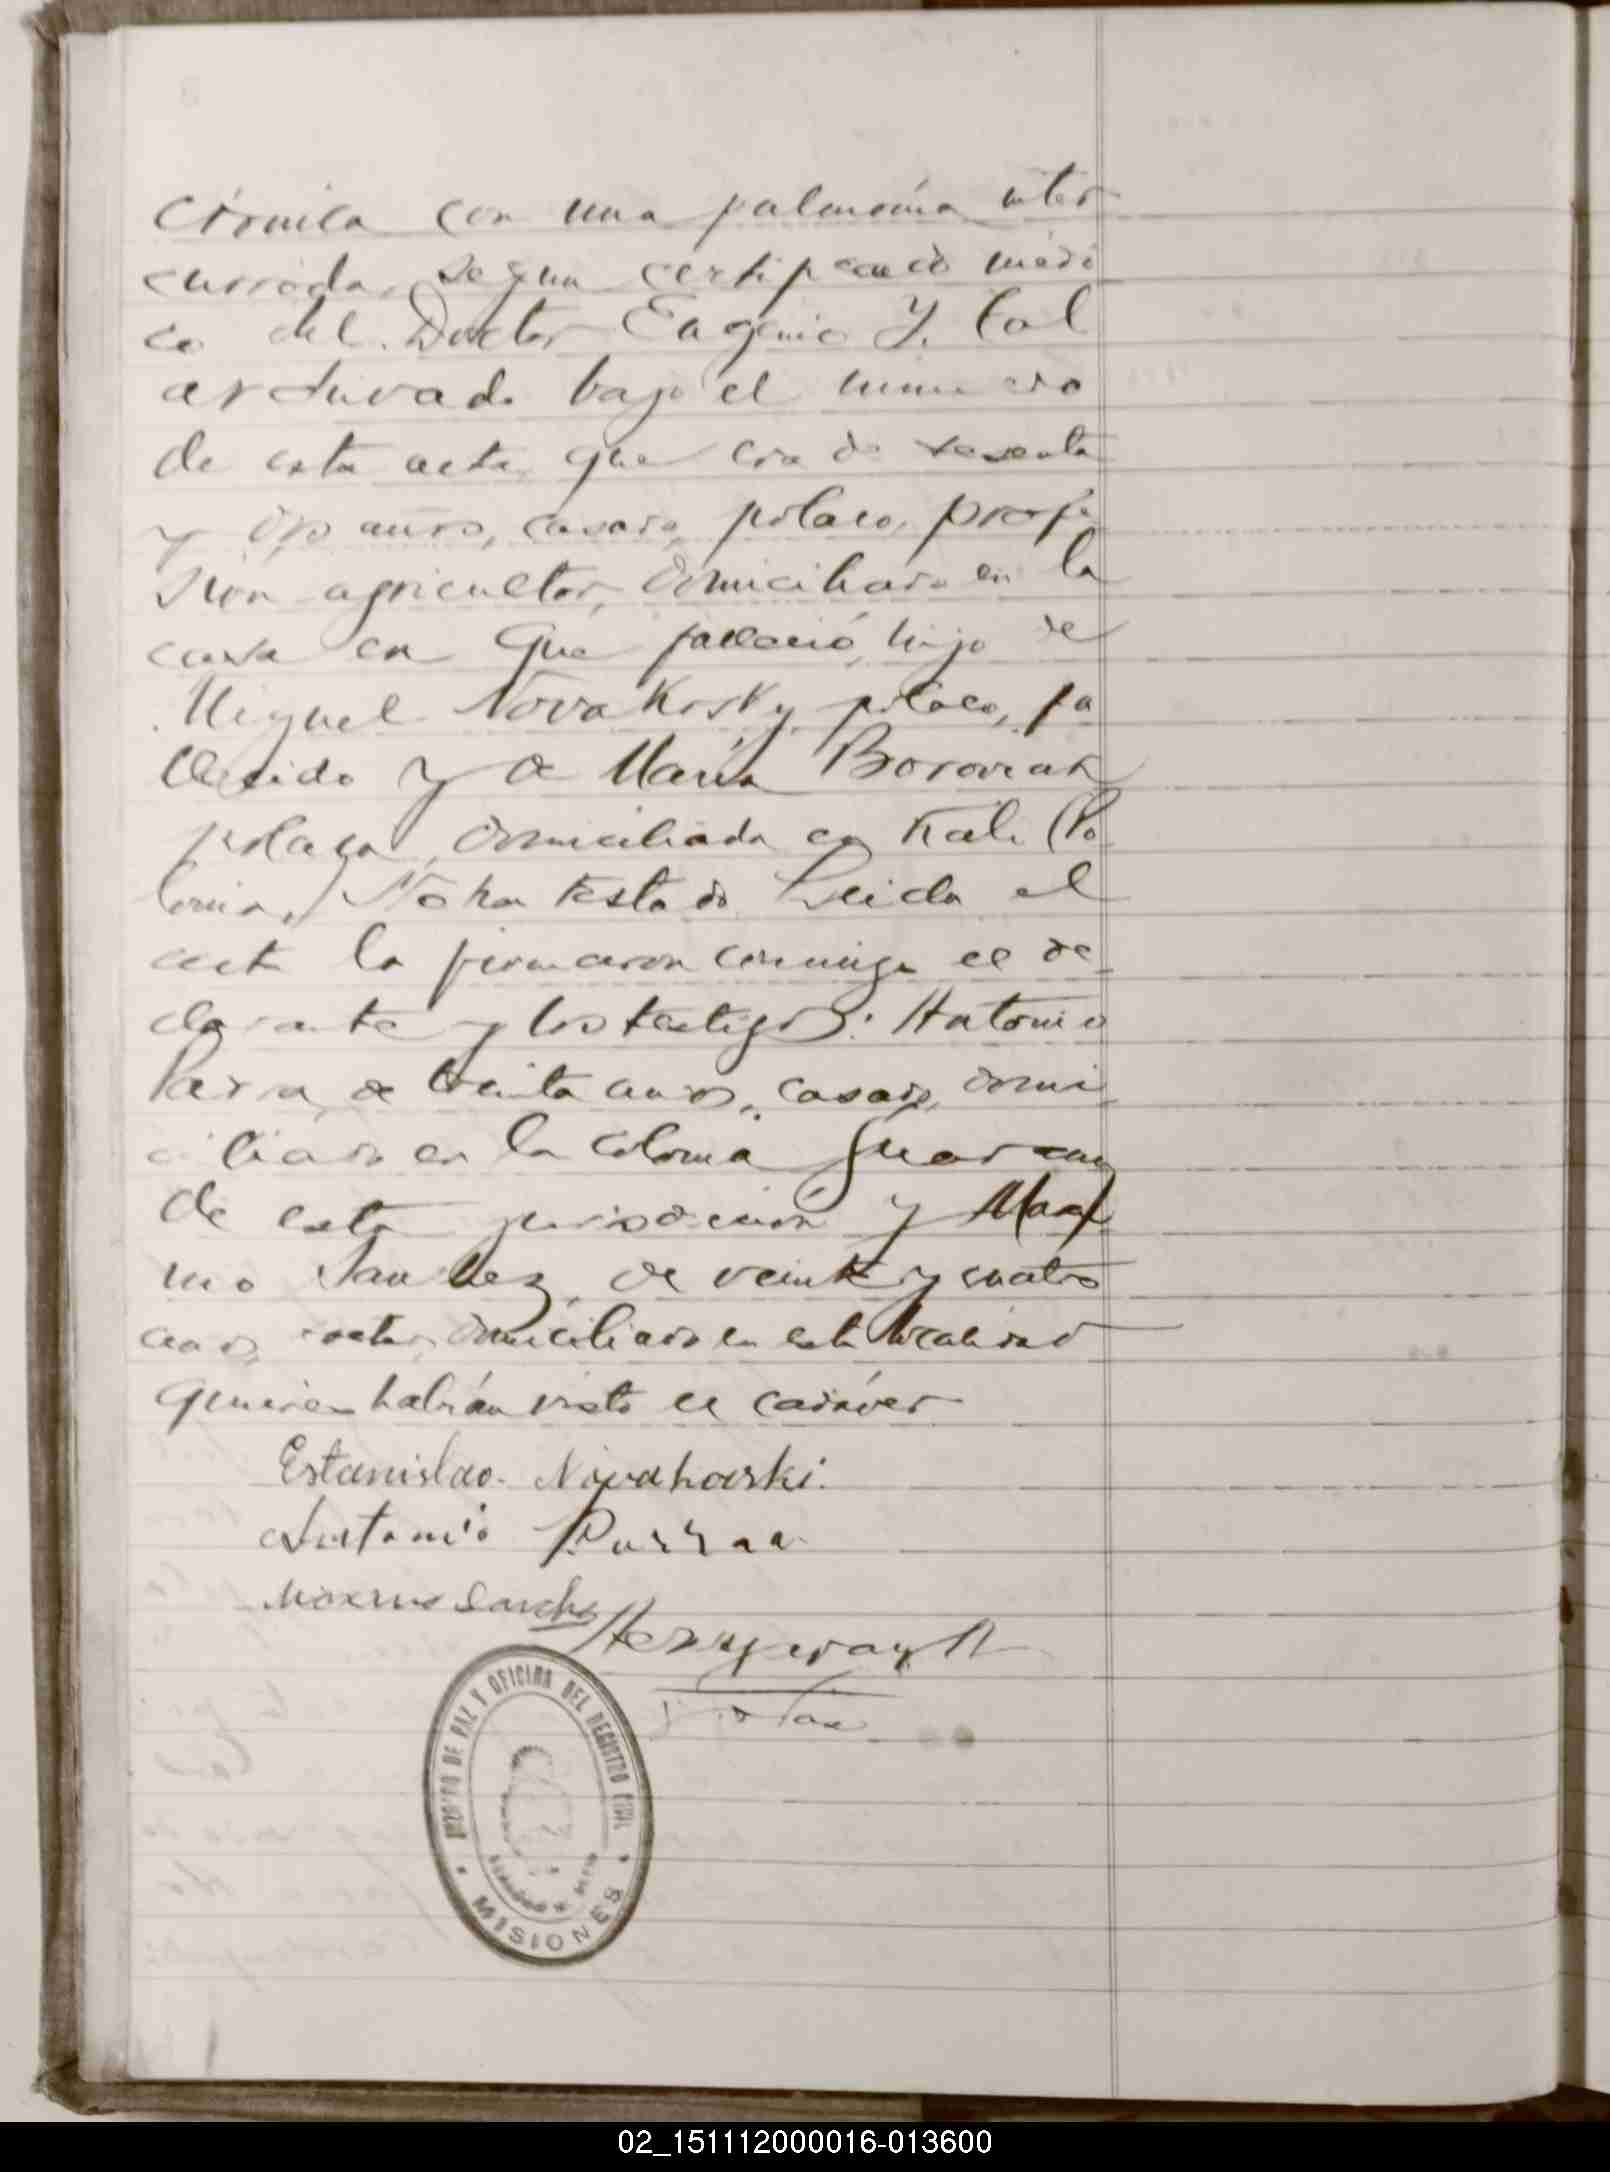 crónica con una pulmonía inter
currida, segun certificado médi
co del Doctor Eugenio Y. Cal
archivado bajo el numero
de esta acta, que era de sesenta
y dos años, casado, polaco, profe
sión agricultor, domiciliado en la
casa en que falleció, hijo de
Miguel Novakosky, polaco, fa
llecido y de María Boroviak
polaca, domiciliada en Kali (Po
lonia.) No ha testado. Leida el
acta la firmaron conmigo el de
clarante y los testigos: Antonio
Parra, de treinta años, casado, domi
ciliado en la colonia Guarany
de esta jurisdicción y Maxi
mo Sanchez, de veinte y cuatro
años, domiciliado en esta localidad
quienes habían visto el cadáver
Estanislao Novakovski.
Antonio Parra
Maximo Sanchez
JUZGADO DE PAZ Y OFICINA DEL REGISTRO CIVIL
MISIONES
02_151112000016-013600